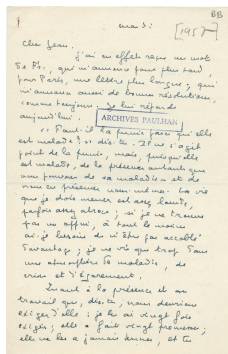 BB
mardi
[1957]
Cher Jean,
j'ai en effet reçu un mot
de
pour Paris, une lettre plus longue, qui
m'annonce aussi de bonnes résolutions,
comme toujours. Je lui réponds
aujourd'hui.
ARCHIVES PAULHAN
"Faut-il la punir parce qu'elle
est malade?" dis-tu. Il ne s'agit
point de la punir, mais, puisqu'elle
est malade, de la préserver autant que
nous pouvons de sa maladie - et de
nous en préserver nous-même. La vie
que je dois mener est assez lourde,
parfois assez atroce ; si je ne trouve
pas un appui, à tout le moins
ai-je besoin de n'être pas accablé
davantage ; je ne vis que trop dans
une atmosphère de maladie, de
crises et d'égarement.
Quant à la présence et au
travail que, dis-tu, nous devrions
exiger d'elle : je les ai vingt fois
exigés ; elle a fait vingt promesses ;
elle ne les a jamais tenues, et tu